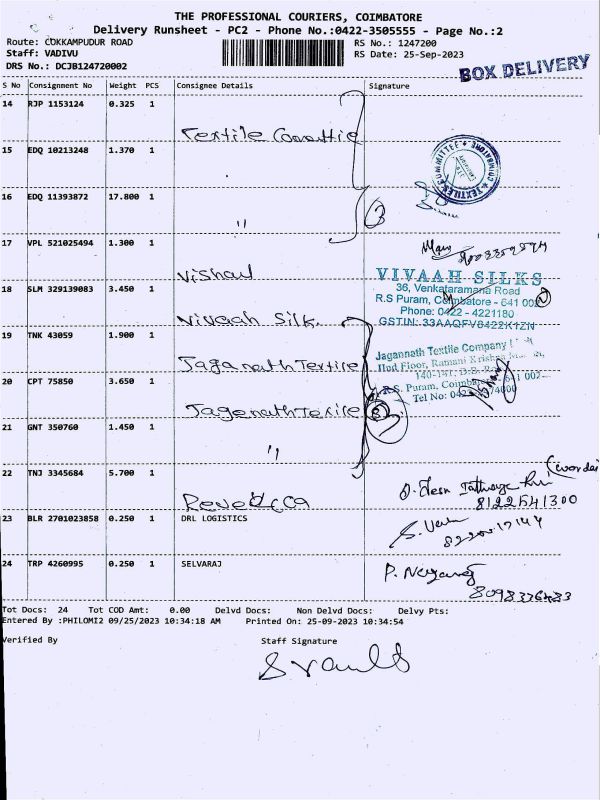 THE PROFESSIONAL COURIERS, COIMBATORE
Delivery Runsheet - PC2 - Phone No.:0422-3505555 - Page No.:2
Route: COKKAMPUDUR ROAD
RS No.: 1247200
Staff: VADIVU
RS Date: 25-Sep-2023
DRS No.: DCJB124720002
BOX DELIVERY
S No Consignment No Weight PCS Consignee Details Signature
14 RJP 1153124 0.325 1
Textile
TEXTILES COMMITTEE
COIMBATORE
15 EDQ 10213248 1.370 1
16 EDQ 11393872 17.800 1
"
3
17 VPL 521025494 1.300 1
Vishal
VIVAAH SILKS
36, Venkataramana Road
R.S Puram, Coimbatore - 641 002
Phone: 0422 - 4221180
GSTIN: 33AAQFV8422K1ZN
18 SLM 329139083 3.450 1
Vivaah Silk.
19 TNK 43059 1.900 1
Jaganath Textile
Jagannath Textile Company
IInd Floor, Ramani Krishna
140-141, D.B.
R.S. Puram, Coimbatore 641 002
Tel No: 0422
20 CPT 75850 3.650 1
Jagenath Texile
3
21 GNT 350760 1.450 1
"
22 TNJ 3345684 5.700 1
Rebecca
8122541300
23 BLR 2701023858 0.250 1 DRL LOGISTICS
24 TRP 4260995 0.250 1 SELVARAJ
P.
8098336483
Tot Docs: 24 Tot COD Amt: 0.00 Delvd Docs: Non Delvd Docs: Delvy Pts:
Entered By :PHILOMI2 09/25/2023 10:34:18 AM Printed On: 25-09-2023 10:34:54
Verified By Staff Signature